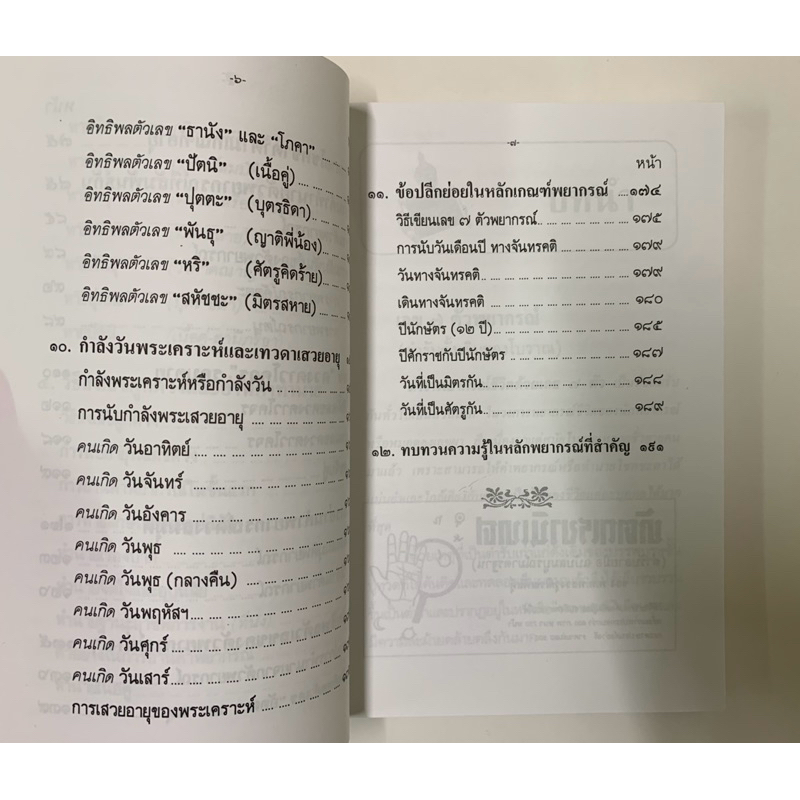 -๖-
อิทธิพลตัวเลข “ธานัง” และ “โภคา” ....
อิทธิพลตัวเลข “ปัตนิ” (เนื้อคู่)....
อิทธิพลตัวเลข “ปุตตะ” (บุตรธิดา)....
อิทธิพลตัวเลข “พันธุ” (ญาติพี่น้อง)....
อิทธิพลตัวเลข “หริ” (ศัตรูคิดร้าย)....
อิทธิพลตัวเลข “สหัชชะ” (มิตรสหาย)....
๑๐. กำลังวันพระเคราะห์และเทวดาเสวยอายุ
กำลังพระเคราะห์หรือกำลังวัน ....
การนับกำลังพระเสวยอายุ ....
คนเกิด วันอาทิตย์ ....
คนเกิด วันจันทร์ ....
คนเกิด วันอังคาร ....
คนเกิด วันพุธ ....
คนเกิด วันพุธ (กลางคืน) ....
คนเกิด วันพฤหัสฯ ....
คนเกิด วันศุกร์ ....
คนเกิด วันเสาร์ ....
การเสวยอายุของพระเคราะห์ ....
-๗-
หน้า
๑๑. ข้อปลีกย่อยในหลักเกณฑ์พยากรณ์ ....๑๗๔
วิธีเขียนเลข ๗ ตัวพยากรณ์....๑๗๕
การนับวันเดือนปี ทางจันทรคติ ....๑๗๙
วันทางจันทรคติ....๑๗๙
เดินทางจันทรคติ ....๑๘๐
ปีนักษัตร (๑๒ ปี)....๑๘๕
ปีศักราชกับปีนักษัตร ....๑๘๗
วันที่เป็นมิตรกัน....๑๘๘
วันที่เป็นศัตรูกัน....๑๘๙
๑๒. ทบทวนความรู้ในหลักพยากรณ์ที่สำคัญ ๑๙๑